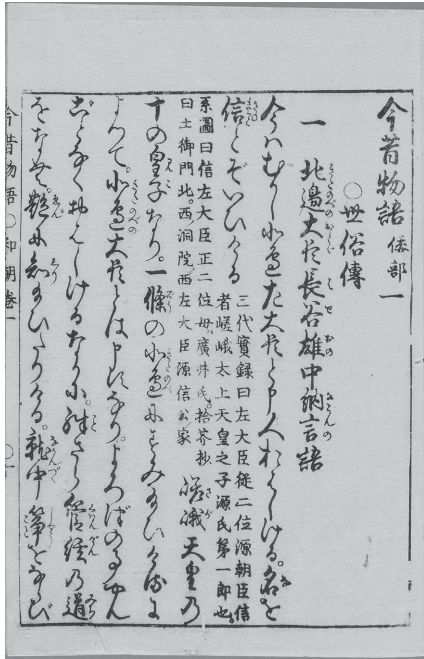 今昔物語 倭部一
○世俗傳
一 北邉大臣長谷雄中納言語
今ハむかし北邉左大臣と申人おはしける。名を
信とぞいひける
三代實録曰左大臣従二位源朝臣信
者嵯峨太上天皇之子源氏第一郎也。
系圖曰信左大臣正二位母廣井氏。拾芥抄
曰土御門北。西洞院西左大臣源信公家
嵯峨天皇乃
十の皇子なり。一條の北邉にすみ給ひけるに
よつて。北邉大臣とは申すなり。よろづの事やん
ごとなくおはしけるなかに。殊さら管絃乃道
をなむ。艶に知給ひたりける。就中箏をならび
今昔物語 ○和朝巻一 ○一